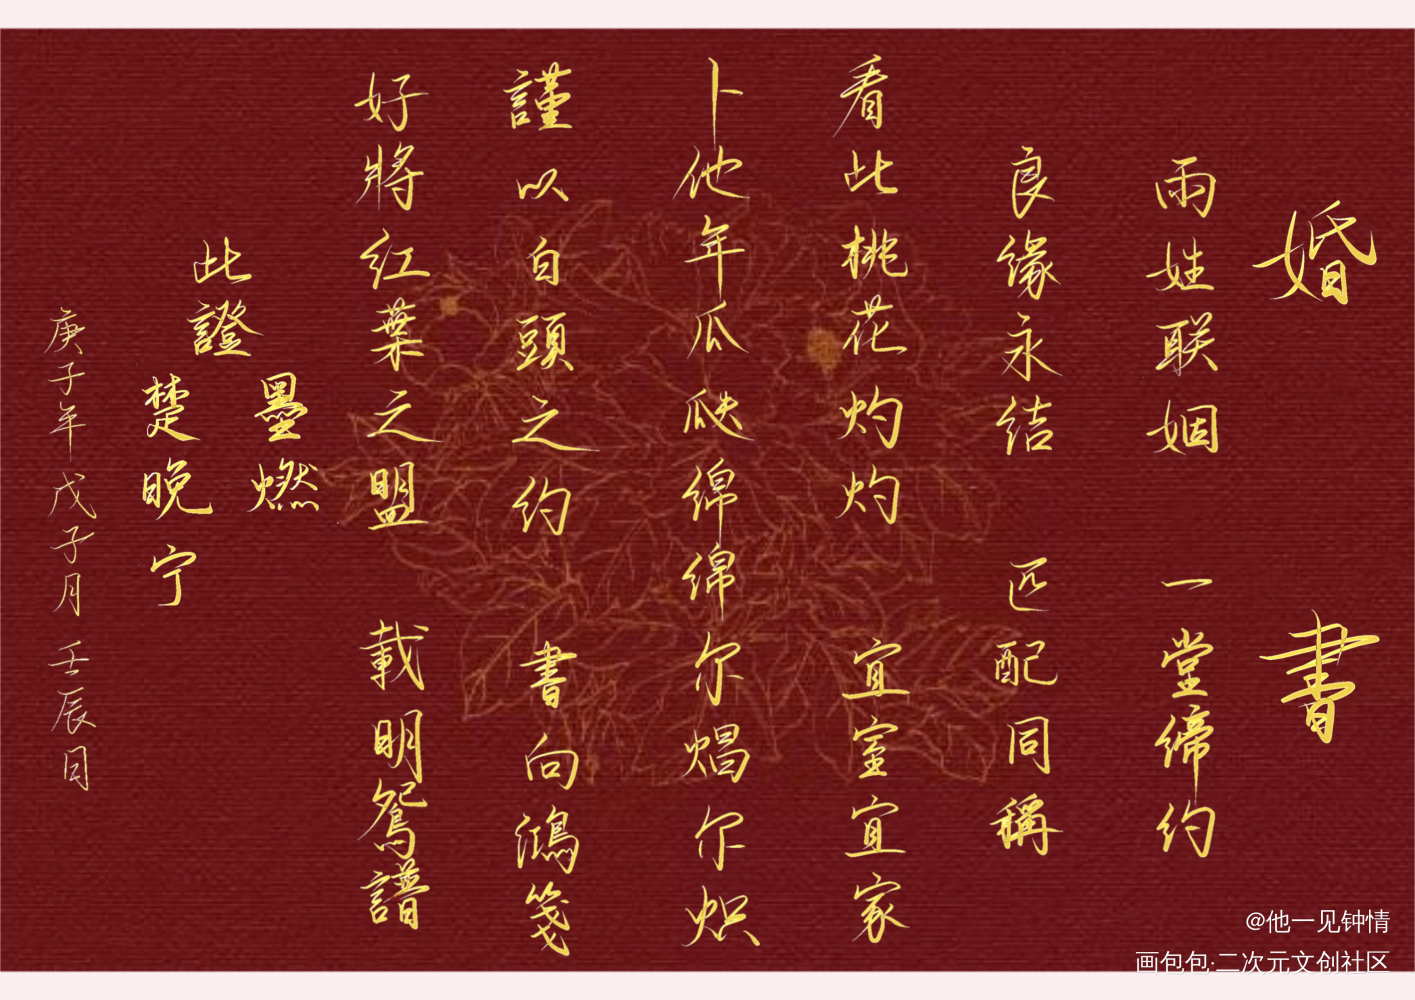 婚書
兩姓联姻 一堂締约
良缘永结 匹配同稱
看此桃花灼灼 宜室宜家
卜他年瓜瓞绵绵 尔焻尔炽
謹以白頭之约 書向鴻笺
好將红葉之盟 載明鸳譜
此證
墨燃
楚晚宁
庚子年戊子月壬辰日
@他一见钟情
画包包·二次元文创社区